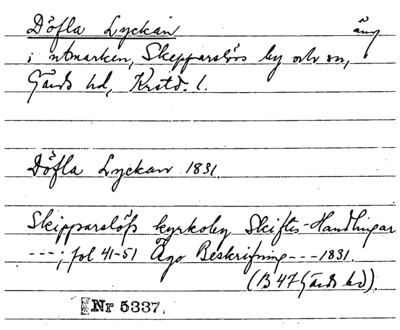 Döfla Lyckan äng
i utmarken, Skepparslövs by och sn,
Gärds hd, Krstd. l.
Döfla Lyckan 1831.
Skipparslöfs kyrkoby Skiftes-Handlingar
---; fol 41-51 Ägo Beskrifning --- 1831.
(B 47 Gärds hd).
Nr 5337.